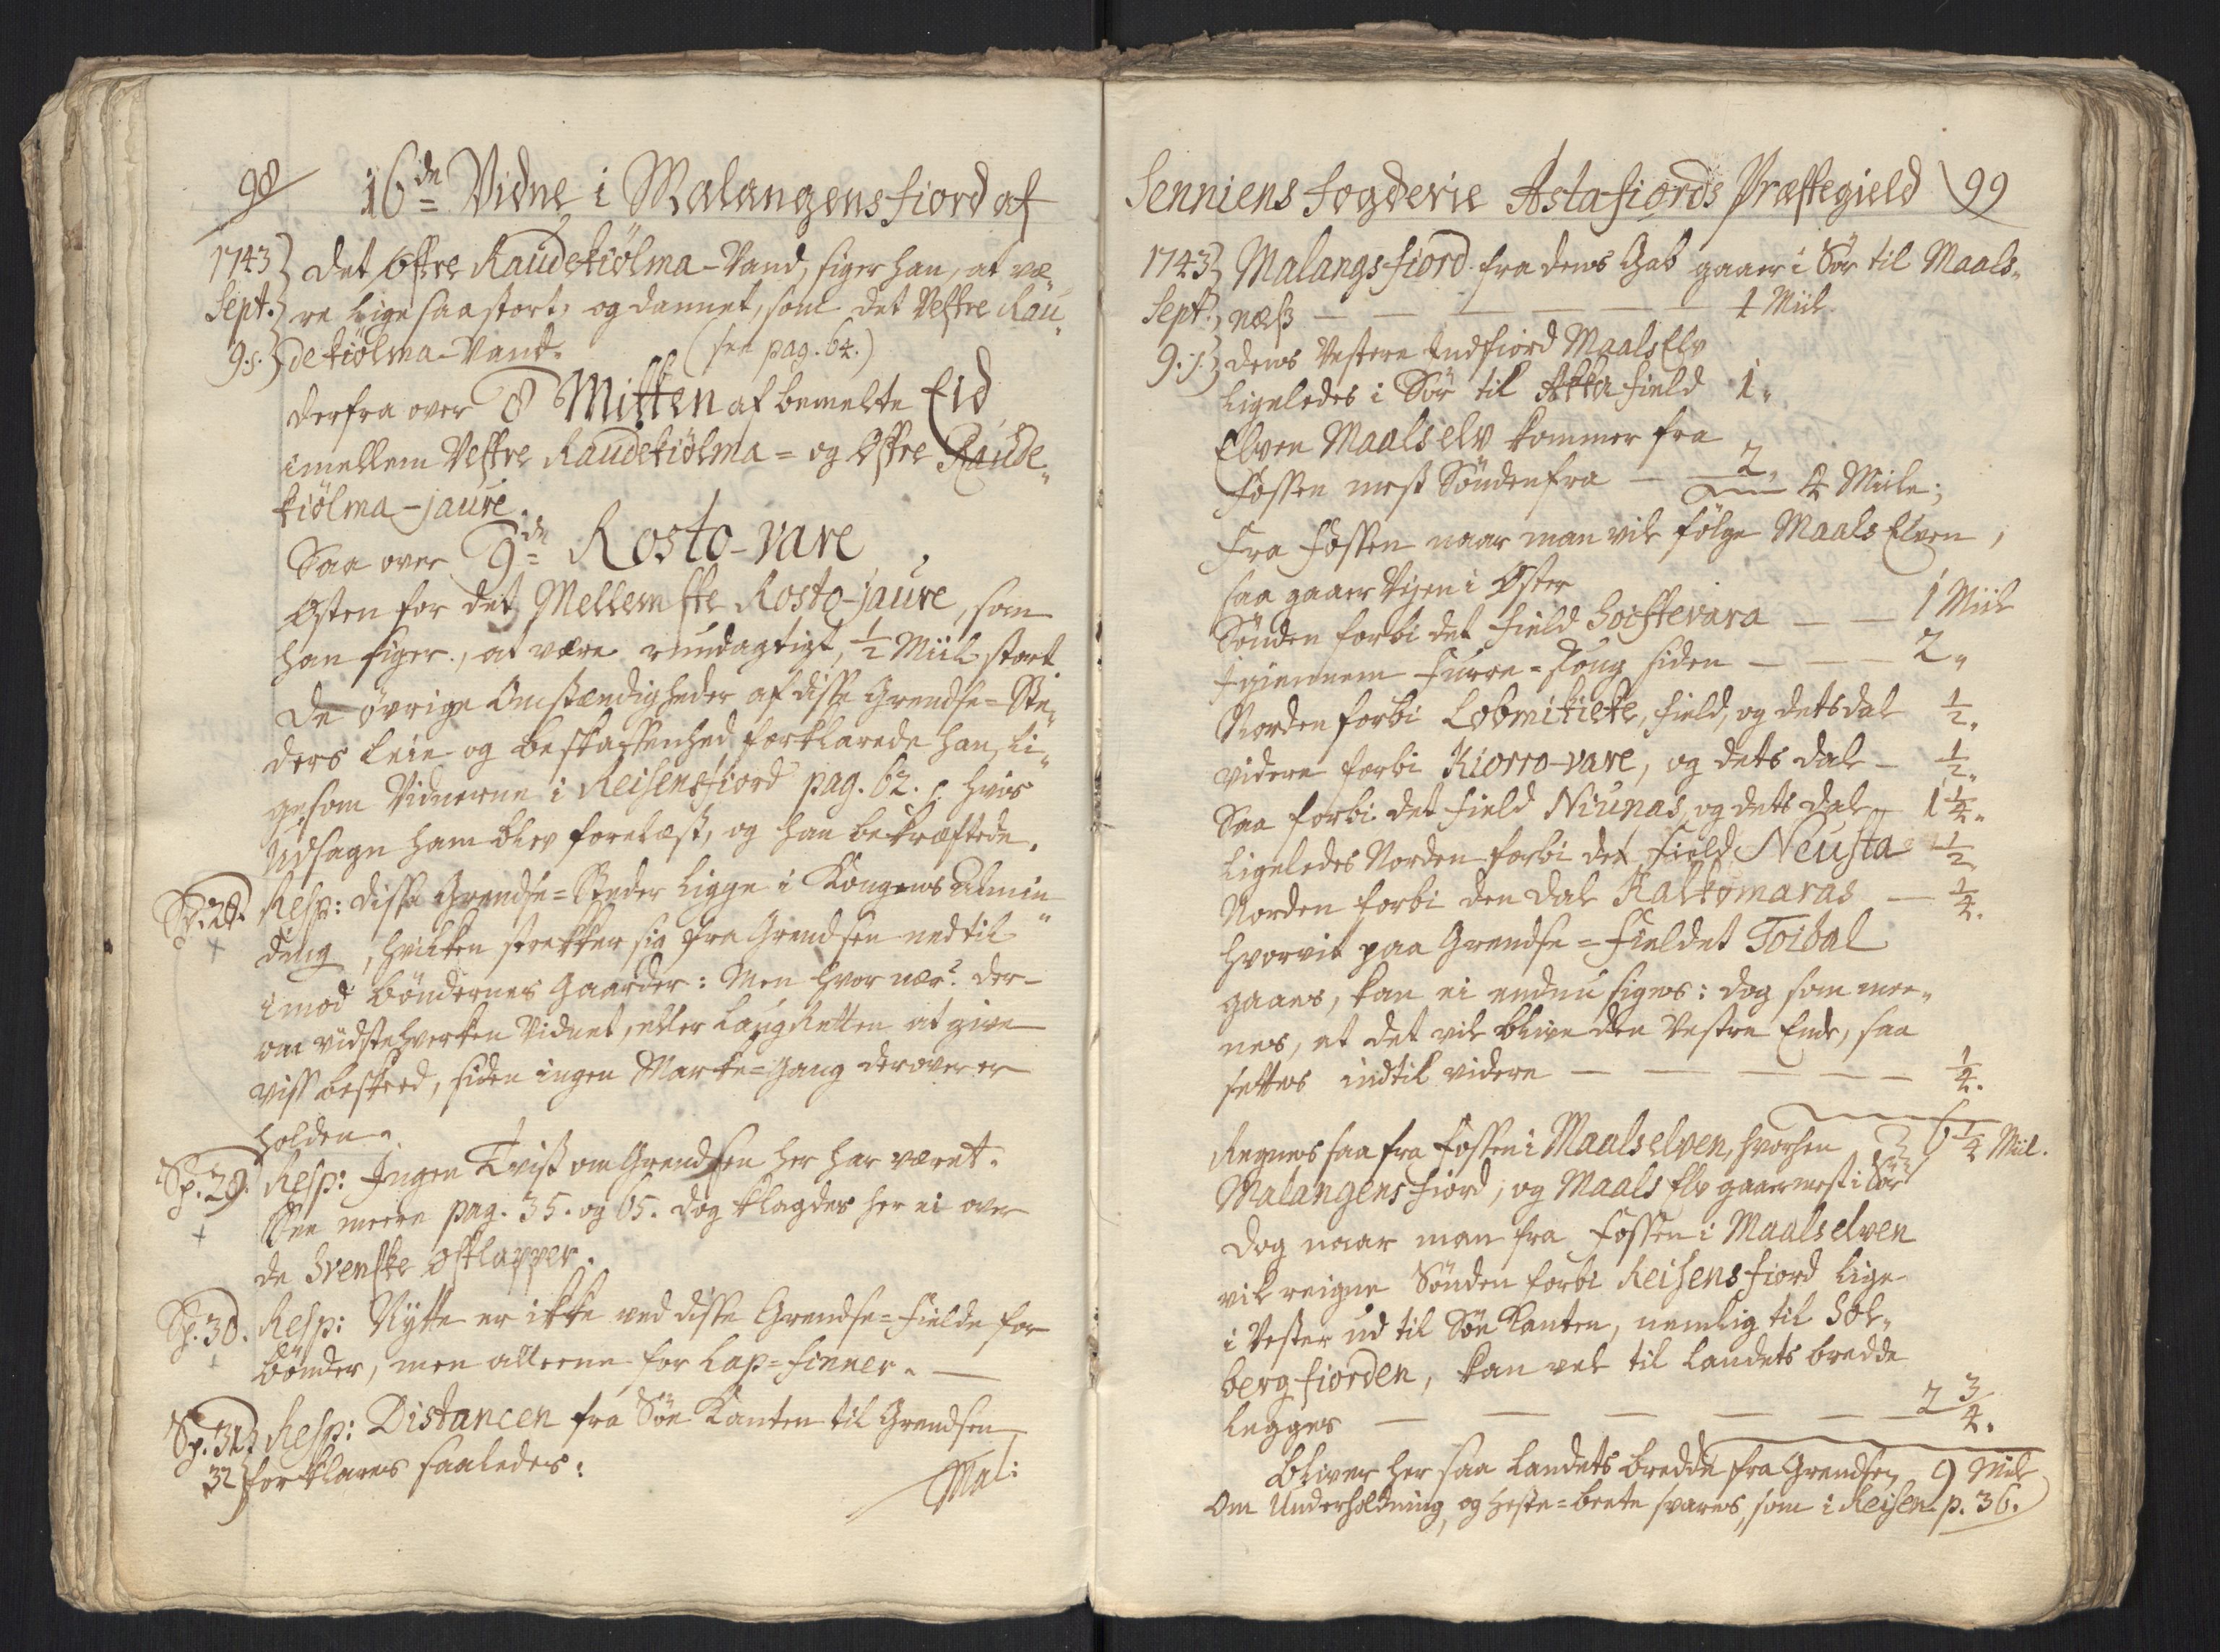 98
16de Vidne i Malangens fiord af
1743 Det Östre Raudekiölma-Vand, siger han, at væ-
Sept. re lige saa stort, og dannet, som det Vestre Rau-
9.s. dekiölma-Vand. (see pag. 64.)
Derfra over 8 Mitten af bemelte Eid
imellem Vestre Raudekiölma= og Östre Raude-
kiölma-jaure.
Saa over 9de Rosto-vare
Østen for det Mellemste Rosto-jaure, som
han siger, at være rundagtigt, ½ Miil stort
De øvrige Omstændigheder af disse Grendse=Ste-
ders Leie og beskaffenhed forklarede han, li-
gesom Vidnerne i Reisensfiord pag. 62. hvis
Udsagn ham blev forelæst, og han bekræftede.
Sp. 28. Resp: Disse Grendse=Steder ligge i Kongens Almin-
ding, hvilken strekker sig fra Grendsen ned til
imod Böndernes Gaarder: Men hvor nær? der-
om vidste hverken Vidnet, eller LaugRetten at give
viss beskeed, siden ingen Marke=Gang derover er
holden.
Sp. 29. Resp: Ingen Tvist om Grendsen her har været.
See meere pag. 35. og 65. dog klagdes her ei over
de Svenske Østlapper.
Sp. 30. Resp: Nytte er ikke ved disse Grendse=Fielde for
bönder, men alleene for Lap=Finner. —
Sp. 31 Resp: Distancen fra Söe Kanten til Grendsen
32 forklares saaledes:
Mal:
Senniens Fogderie Astafiords Præstegield 99
1743 Malangsfiord fra dens Gab gaaer i Sör til Maals-
Sept. næss — — — — — — 1 Miil
9.s. dens Vestere Indfiord Maals Elv
ligeledes i Sör til Akka field 1.
Elven Maalselv kommer fra
Fossen mest Söndenfra — 2.
4 Miile;
Fra Fossen naar man vil følge Maals Elven,
saa gaaer Vejen i Øster
Sönden forbi det Field Soiftevara — — 1 Miil
Igiennem Furre=Skoug siden — — — 2.
Norden forbi Lobmikiete, field, og detsdal ½.
videre forbi Kiorro-vare, og dets dal — ½.
Saa forbi det Field Niunas og dets dal — 1¼.
Ligeledes Norden forbi det Field Neusta ½
Norden forbi den dal Kalkomaras — ¼.
hvorvit paa Grendse=Fieldet Toibal
gaaes, kan ei endnu siges: dog som mee-
nes, at det vil blive den Vestre Ende, saa
settes indtil videre — — — — — ¼.
Regnes saa fra Fossen i Maalselven, hvorhen 6¼ Miil.
Malangens fiord, og Maals Elv gaaer mest i Sör
Dog naar man fra Fossen i Maalselven
vil reigne Sönden forbi Reisensfiord lige
i Vester ud til Söe Kanten, nemlig til Sol-
bergfiorden, kan vel til Landets bredde
legges — — — — — 2¾.
Bliver her saa Landets bredde fra Grendsen 9 Miil
Om Underholdning, og Heste=beete svares, som i Reisen p. 36.